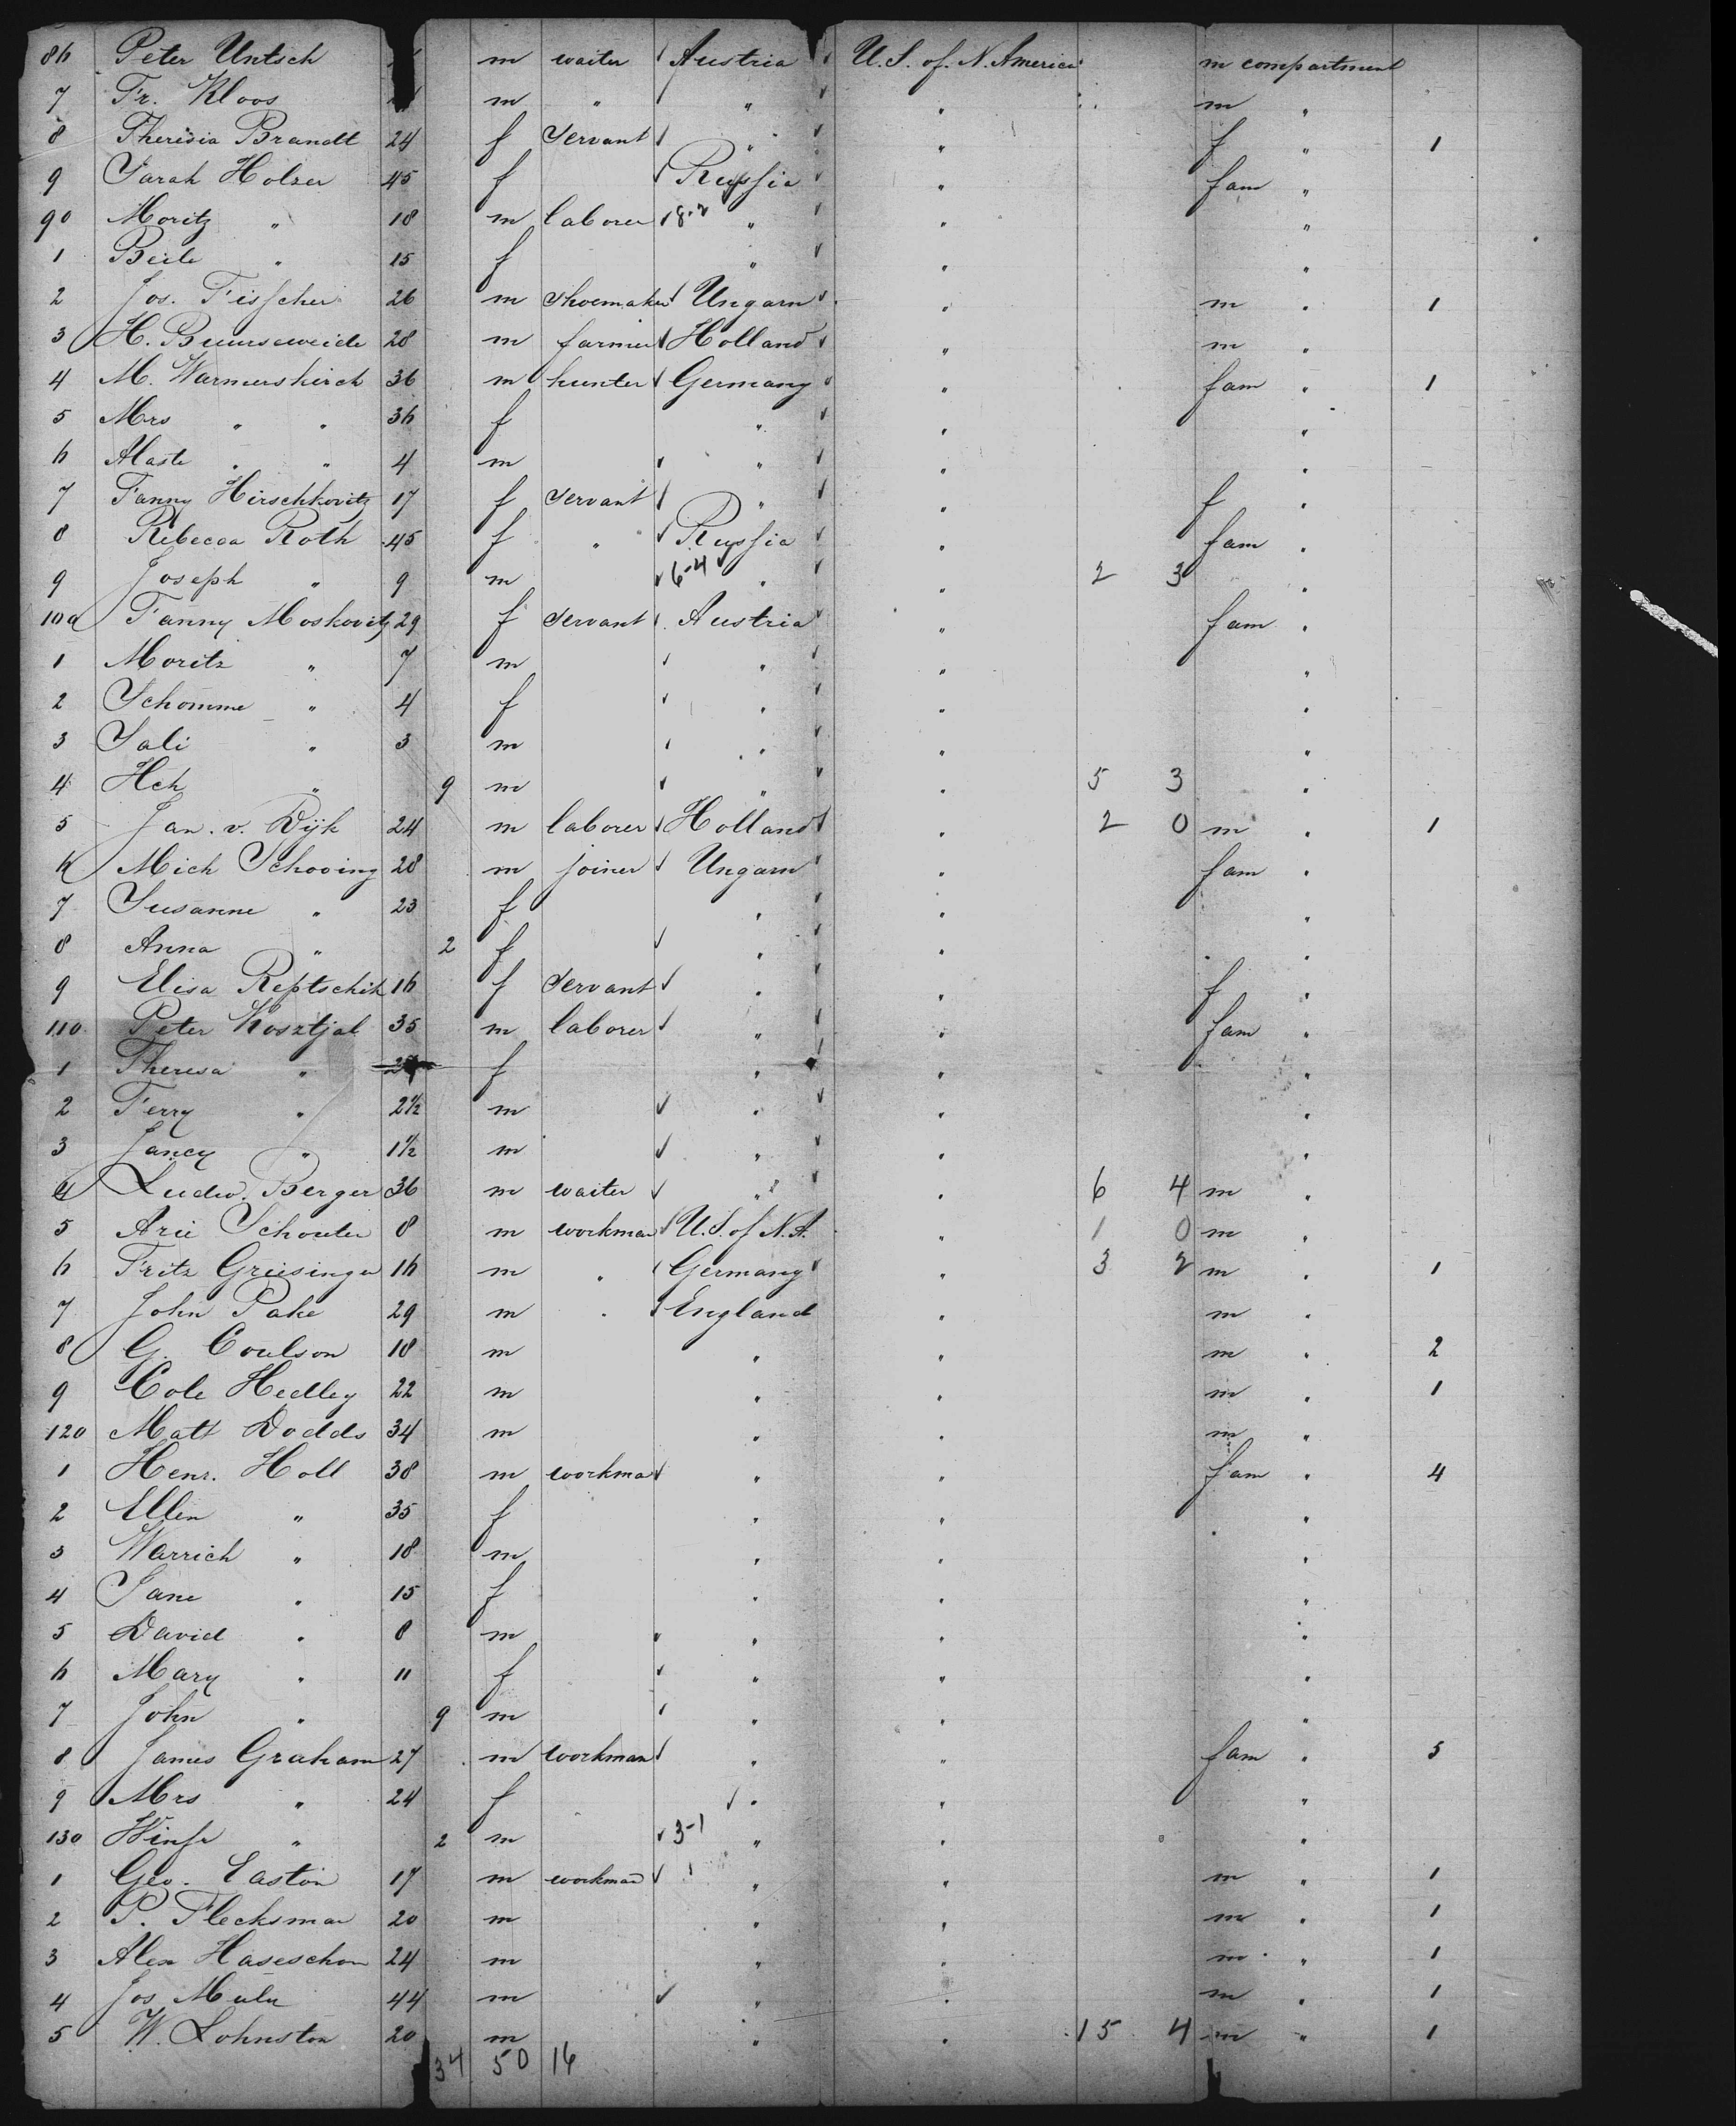 86 Peter Untsch m waiter Austria U.S. of. N. America m compartment
7 Fr. Kloos m " " " m "
8 Theresia Brandt 24 f servant " " f " 1
9 Sarah Holzer 45 f Russia " fam "
90 Moritz " 18 m laborer 8-2 " " "
1 Beile " 15 f " " "
2 Jos. Fisscher 26 m shoemaker Ungarn " m " 1
3 H. 28 m farmer Holland " m "
4 M. Warmerskirch 36 m hunter Germany " fam " 1
5 Mrs " " 36 f " " "
6 Maste " " 4 m " " "
7 Fanny Hirschkovitz 17 f servant " " f "
8 Rebecca Roth 45 f " Russia " fam "
9 Joseph " 9 m 6-4 " " 2 3 "
100 Fanny Moskovitz 29 f servant Austria " fam "
1 Moritz " 7 m " " "
2 Schomme " 4 f " " "
3 Sali " 3 m " " "
4 Hch " 9 m " " 5 3 "
5 Jan. v. Dijk 24 m laborer Holland " 2 0 m " 1
6 Mich Schooing 28 m joiner Ungarn " fam "
7 Susanne " 23 f " " "
8 Anna " 2 f " " "
9 Elisa Reptschik 16 f servant " " f "
110 Peter Kosztjal 35 m laborer " " fam "
1 Theresa " f " " "
2 Ferry " 2½ m " " "
3 Jancy " 1½ m " " "
4 Ludw. Berger 36 m waiter " " 6 4 m "
5 Arie Schouten 8 m workman U.S. of N.A. " 1 0 m "
6 Fritz Griesinger 16 m " Germany " 3 2 m " 1
7 John Pake 29 m " England " m "
8 G. Coulson 18 m " " m " 2
9 Cole Hedley 22 m " " m " 1
120 Matt Dodds 34 m " " m "
1 Henr. Holl 38 m workma " " fam " 4
2 Ellen " 35 f " " "
3 Warrich " 18 m " " "
4 Jane " 15 f " " "
5 David " 8 m " " "
6 Mary " 11 f " " "
7 John " 9 m " " "
8 James Graham 27 m workman " " fam " 5
9 Mrs " 24 f " " "
130 " 2 m 3-1 " " "
1 Geo. Easton 17 m workman " " m " 1
2 P. Flecksman 20 m " " m " 1
3 Alex Haseschon 24 m " " m " 1
4 Jos 44 m " " m " 1
5 W. Lohnston 20 m " " 15 4 m " 1
34 50 16